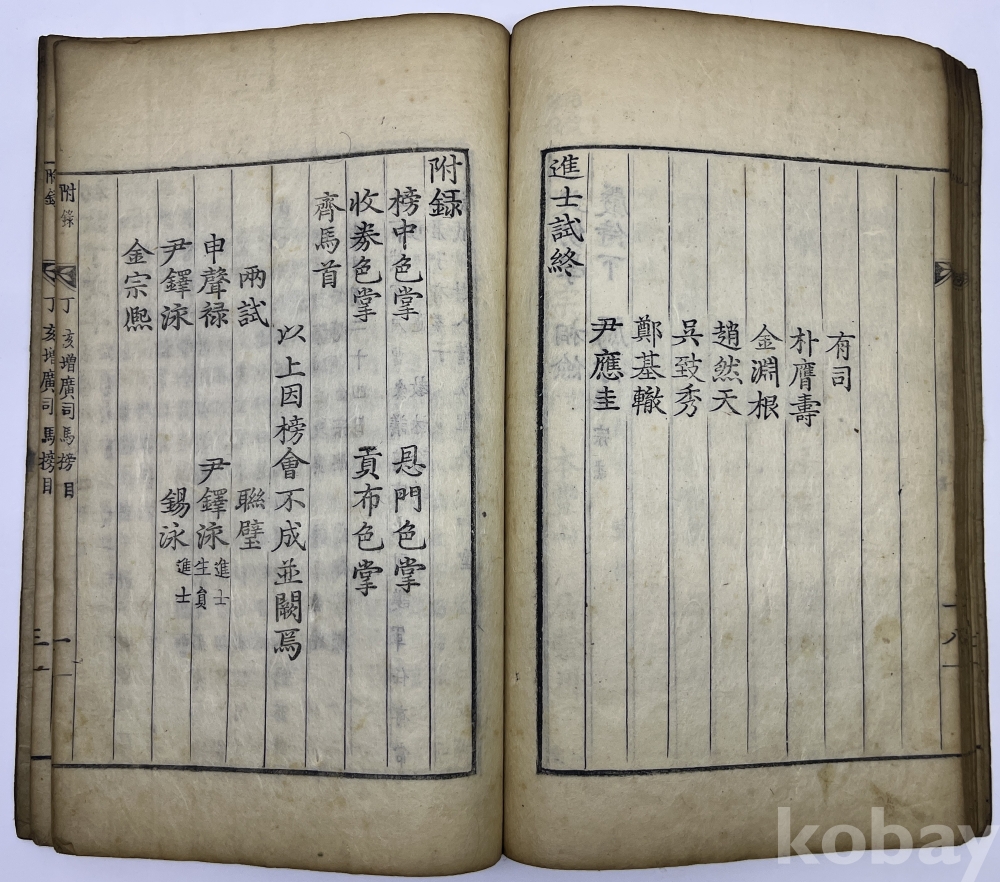 有司
朴膺壽
金淵根
趙然天
吳致秀
鄭基轍
尹應圭
進士試終
附録
榜中色掌 悬門色掌
收券色掌 貢布色掌
齊馬首
以上因榜會不成並闕焉
兩試 聯璧
申聲禄 尹鐸泳 進士 生負
尹鐸泳 錫泳 進士
金宗熈
附錄
丁亥增廣司馬榜目
一
附錄
丁亥增廣司馬榜目
kobay